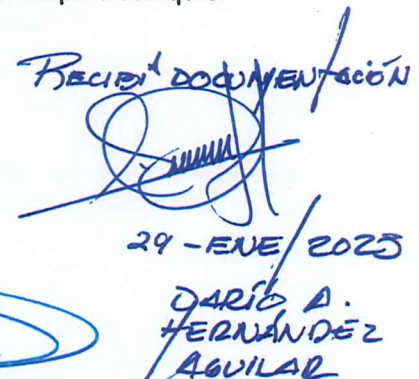 RECIBÍ DOCUMENTACIÓN
29-ENE/2025
DARÍO A.
HERNÁNDEZ
AGUILAR